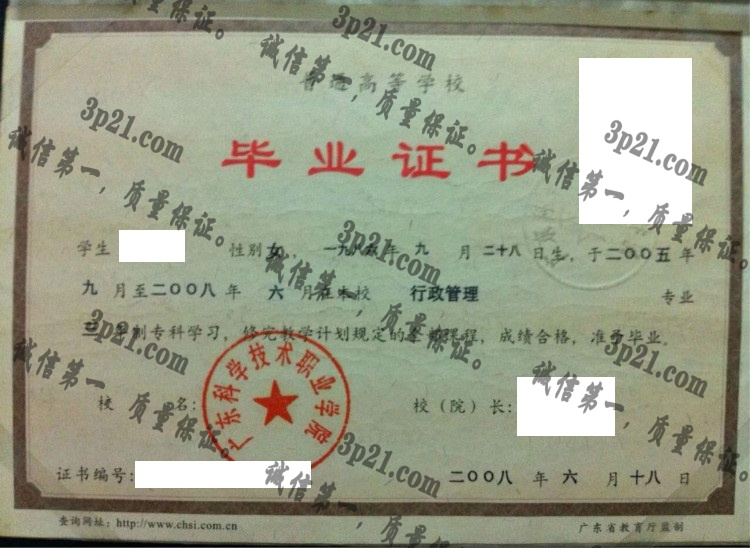 普通高等学校
毕业证书
学生 性别 女, 一九八六年 九 月 二十八 日生, 于二〇〇五 年
九 月至二〇〇八 年 六 月在本校 行政管理 专业
三 年制专科学习, 修完教学计划规定的全部课程, 成绩合格, 准予毕业。
校 名: 校 (院) 长:
广东科学技术职业学院
证书编号: 二〇〇八 年 六 月 十八 日
查询网址: http://www.chsi.com.cn 广东省教育厅监制
3p21.com
诚信第一, 质量保证。
3p21.com
诚信第一, 质量保证。
3p21.com
诚信第一, 质量保证。
3p21.com
诚信第一, 质量保证。
3p21.com
诚信第一, 质量保证。
3p21.com
诚信第一, 质量保证。
3p21.com
诚信第一, 质量保证。